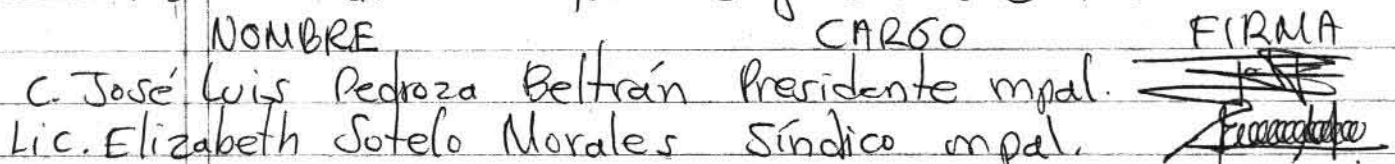 NOMBRE CARGO FIRMA
C. José Luis Pedroza Beltrán Presidente mpal.
Lic. Elizabeth Sotelo Morales Síndico mpal.